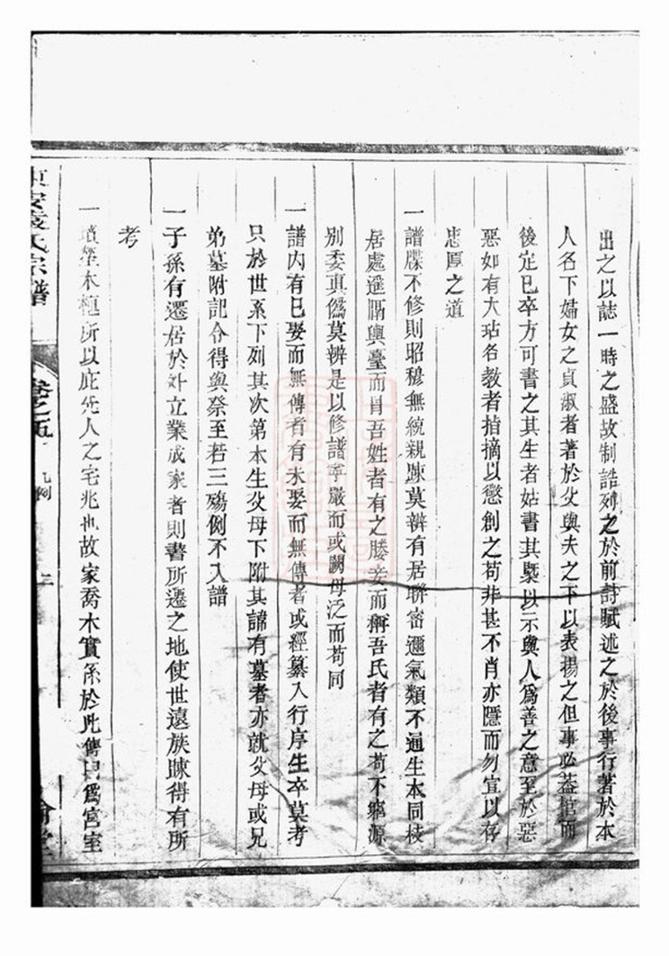 出之以誌一時之盛故制誥列之於前詩賦述之於後事行著於本
人名下婦女之貞淑者著於父與夫之下以表揚之但事必蓋棺而
後定已卒方可書之其生者姑書其槩以示與人為善之意至於惡
惡如有大玷名教者指摘以懲創之苟非甚不肖亦隱而勿宣以存
忠厚之道
一譜牒不修則昭穆無統親踈莫辨有居聯密邇氣類不通生本同枝
居處遥隔輿臺而冒吾姓者有之媵妾而稱吾氏者有之苟不窮源
別委真偽莫辨是以修譜寧嚴而或闕毋泛而苟同
一譜內有已娶而無傳者有未娶而無傳者或經纂入行序生卒莫考
只於世系下列其次第本生父母下附其諱有墓者亦就父母或兄
弟墓附記令得與祭至若三殤例不入譜
一子孫有遷居於外立業成家者則書所遷之地使世遠族踈得有所
考
一墳塋木植所以庇先人之宅兆也故家喬木實係於此傳曰為宮室
東安袁氏宗譜
卷之五
凡例
三